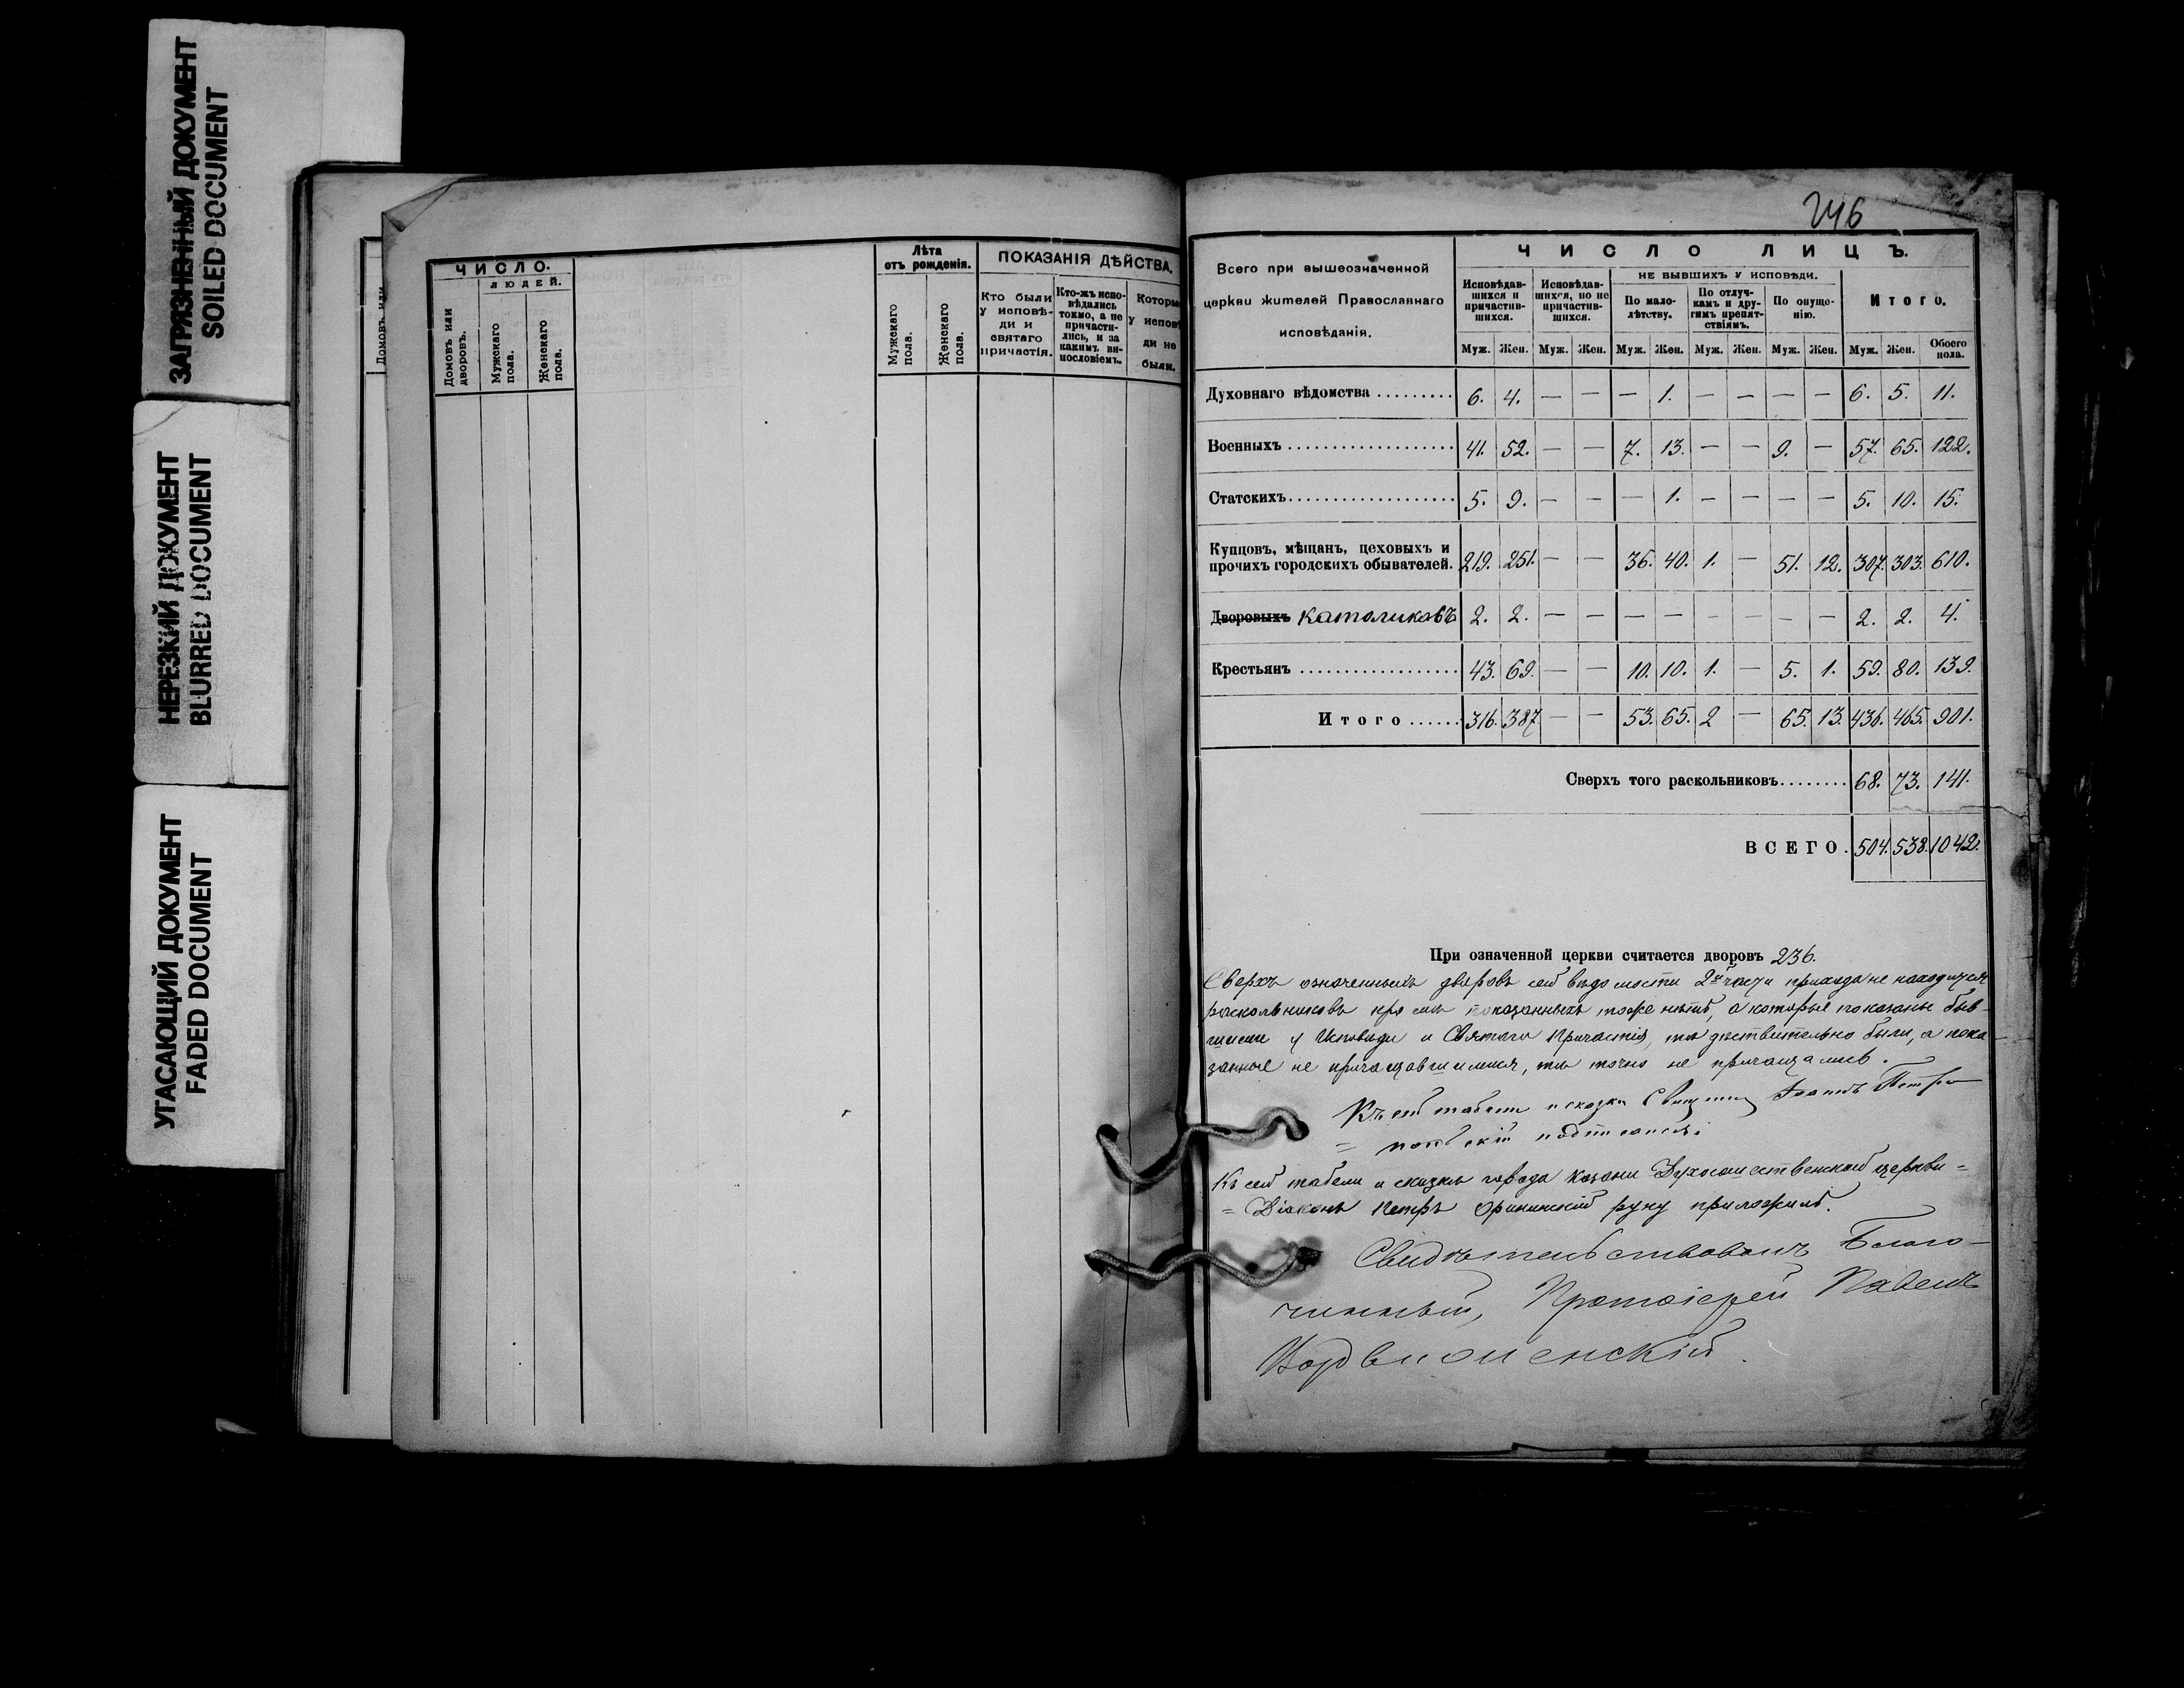 ЗАГРЯЗНЕННЫЙ ДОКУМЕНТ
SOILED DOCUMENT
НЕРЕЗКИЙ ДОКУМЕНТ
BLURRED DOCUMENT
УГАСАЮЩИЙ ДОКУМЕНТ
FADED DOCUMENT
Домовъ или
ЧИСЛО.
ЛЮДЕЙ.
Домовъ или дворовъ.
Мужскаго пола.
Женскаго пола.
Лѣта
отъ рожденія.
Мужскаго пола.
Женскаго пола.
ПОКАЗАНІЯ ДѢЙСТВА.
Кто были у исповѣди и святаго причастія.
Кто-жъ исповѣдались токмо, а не причастились, и за какимъ винословіемъ.
Которы у исповѣди не были.
246
Всего при вышеозначенной
церкви жителей Православнаго
исповѣданія.
ЧИСЛО ЛИЦЪ.
Исповѣдавшихся и причастившихся.
Исповѣдавшихся, но не причастившихся.
НЕ БЫВШИХЪ У ИСПОВѢДИ.
По малолѣтству.
По отлучкамъ и другимъ препятствіямъ.
По опущенію.
Итого.
Муж. Жен. Муж. Жен. Муж. Жен. Муж. Жен. Муж. Жен. Муж. Жен. Обоего пола.
Духовнаго вѣдомства ......... 6. 4. — — — 1. — — — — 6. 5. 11.
Военныхъ ................... 41. 52. — — 7. 13. — — 9. — 57. 65. 122.
Статскихъ................... 5. 9. — — — 1. — — — — 5. 10. 15.
Купцовъ, мѣщанъ, цеховыхъ и
прочихъ городскихъ обывателей. 219. 251. — — 36. 40. 1. — 51. 12. 307. 303. 610.
Дворовыхъ католиковъ 2. 2. — — — — — — — — 2. 2. 4.
Крестьянъ .................. 43. 69. — — 10. 10. 1. — 5. 1. 59. 80. 139.
Итого ...... 316. 387 — — 53. 65. 2 — 65. 13. 436. 465. 901.
Сверхъ того раскольниковъ........ 68. 73. 141.
ВСЕГО. 504. 538. 1042.
При означенной церкви считается дворовъ 236.
Сверхъ означенныхъ дворовъ сей вѣдомости 2й части прихода не находится
раскольниковъ кромѣ показанныхъ тоже нѣтъ, а которые показаны быв-
шими у Исповѣди и Святаго Причастія, тѣ дѣствительно были, а пока-
занные не причащавшимися, тѣ точно не причащались.
Къ сей табели и сказки Священник Іоаннъ Петро-
подписался.
Къ сей табели и сказкѣ города Казани Духосошественской церкви =
= Діаконъ Петръ руку приложилъ.
Свидѣтельствовалъ Благо-
чинный, Протоіерей Павелъ